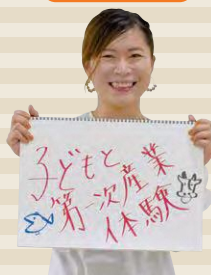 子どもと
第一次産業
体験